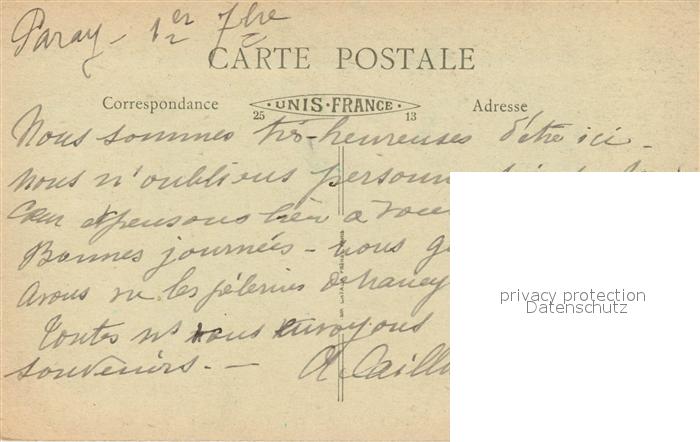 Paray - 1er 7bre
CARTE POSTALE
Correspondance
·UNIS·FRANCE·
Adresse
25 13
Nous sommes très-heureuses d'être ici -
nous n'oublions personn
Cœur et pensons bien à vous
Bonnes journées - nous
avons vu les pèlerins de nancy
Toutes ns vous envoyons
souvenirs. -
privacy protection
Datenschutz